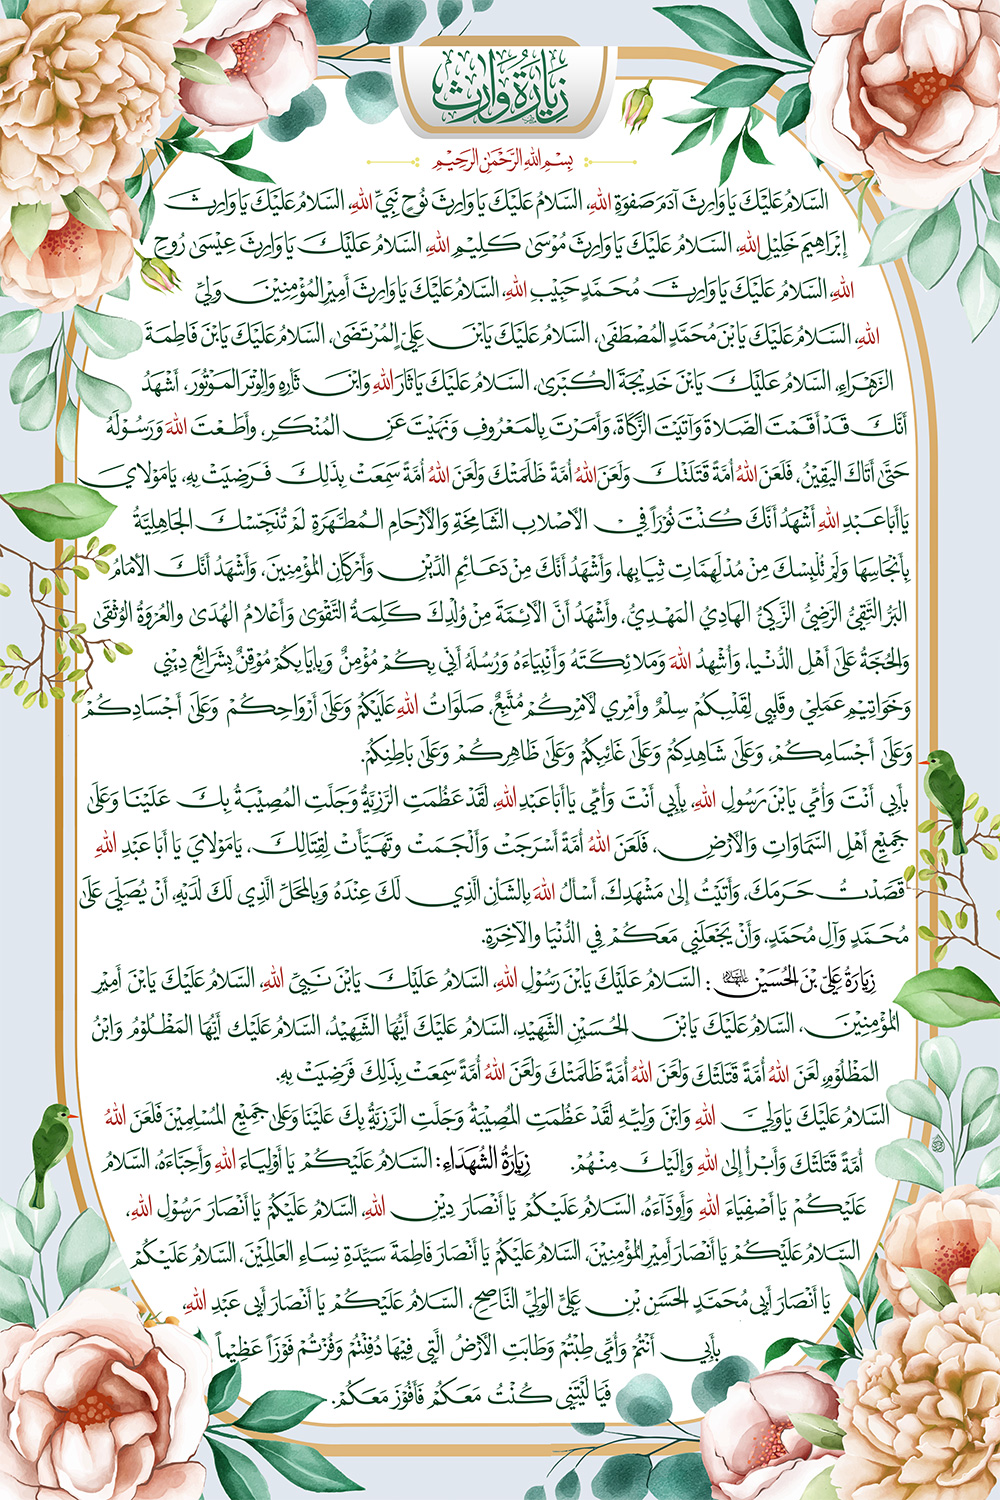 زِيَارَةُ وَارِث
بِسْمِ اللهِ الرَّحْمٰنِ الرَّحِيْمِ
السَّلامُ عَلَيْكَ يَا وَارِثَ آدَمَ صَفوَةِ اللهِ، السَّلامُ عَلَيْكَ يَا وَارِثَ نُوْحٍ نَبِيِّ اللهِ، السَّلامُ عَلَيْكَ يَا وَارِثَ
إِبْرَاهِيمَ خَلِيْلِ اللهِ، السَّلامُ عَلَيْكَ يَا وَارِثَ مُوْسَىٰ كَلِيْمِ اللهِ، السَّلامُ عَلَيْكَ يَا وَارِثَ عِيْسَىٰ رُوْحِ
اللهِ، السَّلامُ عَلَيْكَ يَا وَارِثَ مُحَمَّدٍ حَبِيْبِ اللهِ، السَّلامُ عَلَيْكَ يَا وَارِثَ أَمِيْرِ المُؤْمِنِيْنَ وَلِيِّ
اللهِ، السَّلامُ عَلَيْكَ يَابْنَ مُحَمَّدٍ المُصْطَفَى، السَّلامُ عَلَيْكَ يَابْنَ عَلِيٍّ المُرْتَضَىٰ، السَّلامُ عَلَيْكَ يَابْنَ فَاطِمَةَ
الزَّهْرَاءِ، السَّلامُ عَلَيْكَ يَابْنَ خَدِيْجَةَ الكُبْرَىٰ، السَّلامُ عَلَيْكَ يَا ثَارَ اللهِ وَابْنَ ثَارِهِ وَالوِتْرَ المَوْتُورَ، أَشْهَدُ
أَنَّكَ قَدْ أَقَمْتَ الصَّلاةَ وَآتَيْتَ الزَّكَاةَ، وَأَمَرْتَ بِالمَعْرُوفِ وَنَهَيْتَ عَنِ المُنْكَرِ، وَأَطَعْتَ اللهَ وَرَسُوْلَهُ
حَتَّىٰ أَتَاكَ اليَقِيْنُ، فَلَعَنَ اللهُ أُمَّةً قَتَلَتْكَ وَلَعَنَ اللهُ أُمَّةً ظَلَمَتْكَ وَلَعَنَ اللهُ أُمَّةً سَمِعَتْ بِذَلِكَ فَرَضِيَتْ بِهِ، يَا مَوْلَاي
يَا أَبَا عَبْدِ اللهِ أَشْهَدُ أَنَّكَ كُنْتَ نُوْرًا فِي الأَصْلَابِ الشَّامِخَةِ وَالأَرْحَامِ المُطَهَّرَةِ لَمْ تُنَجِّسْكَ الجَاهِلِيَّةُ
بِأَنْجَاسِهَا وَلَمْ تُلْبِسْكَ مِنْ مُدْلَهِمَّاتِ ثِيَابِها، وَأَشْهَدُ أَنَّكَ مِنْ دَعَائِمِ الدِّيْنِ وَأَرْكَانِ المُؤْمِنِيْنَ، وَأَشْهَدُ أَنَّكَ الأمَامُ
البَرُّ التَّقِيُّ الرَّضِيُّ الزَّكِيُّ الهَادِيُ المَهْدِيُّ، وَأَشْهَدُ أَنَّ الأَئِمَّةَ مِنْ وُلْدِكَ كَلِمَةُ التَّقْوَىٰ وَأَعْلامُ الهُدَىٰ والعُرْوَةُ الوُثْقَىٰ
وَالحُجَّةُ عَلَىٰ أَهْلِ الدُّنْيا، وَأُشْهِدُ اللهَ وَمَلائِكَتَهُ وَأَنْبِيَاءَهُ وَرُسُلَهُ أَنِّي بِكُمْ مُؤْمِنٌ وَبِإيَابِكُمْ مُوْقِنٌ بِشَرَائِعِ دِيْنِي
وَخَوَاتِيْمِ عَمَلِيْ وقَلبِي لِقَلْبِكُمْ سِلْمٌ وأمْرِي لأمْرِكُمْ مُتَّبِعٌ، صَلَوَاتُ اللهِ عَلَيْكُمْ وَعَلَىٰ أَرْوَاحِكُمْ وَعَلَىٰ أَجْسَادِكُمْ
وَعَلَىٰ أَجْسَامِكُمْ، وَعَلَىٰ شَاهِدِكُمْ وَعَلَىٰ غَائِبِكُمْ وَعَلَىٰ ظَاهِرِكُمْ وَعَلَىٰ بَاطِنِكُمْ.
بِأَبِي أَنْتَ وَأُمِّي يَابْنَ رَسُولِ اللهِ، بِأَبِي أَنْتَ وَأُمِّي يَا أَبَا عَبْدِ اللهِ، لَقَدْ عَظُمَتِ الرَّزِيَّةُ وَجَلَّتِ المُصِيْبَةُ بِكَ عَلَيْنَا وَعَلَىٰ
جَمِيْعِ أَهْلِ السَّمَاوَاتِ وَالأَرْضِ، فَلَعَنَ اللهُ أُمَّةً أَسْرَجَتْ وَأَلْجَمَتْ وتَهَيَّأَتْ لِقِتَالِكَ، يَامَوْلايَ يَا أَبَا عَبدِ اللهِ
قَصَدْتُ حَرَمَكَ، وَأَتَيْتُ إِلىٰ مَشْهَدِكَ، أَسْأَلُ اللهَ بِالشَأنِ الَّذِي لَكَ عِنْدَهُ وَبِالمَحَلِّ الَّذِي لَكَ لَدَيْهِ، أَنْ يُصَلِّيَ عَلَىٰ
مُحَمَّدٍ وَآلِ مُحَمَّدٍ، وَأَنْ يَجْعَلَنِي مَعَكُمْ فِي الدُّنْيَا والآخِرَةِ.
زِيَارَةُ عَلِيِّ بْنِ الحُسَيْنِ عليه السلام: السَّلامُ عَلَيْكَ يَابْنَ رَسُوْلِ اللهِ، السَّلامُ عَلَيْكَ يَابْنَ نَبِيِّ اللهِ، السَّلامُ عَلَيْكَ يَابنَ أَمِيْرِ
المُؤْمِنِيْنَ، السَّلامُ عَلَيْكَ يَابْنَ الحُسَيْنِ الشَّهِيْدِ، السَّلامُ عَلَيْكَ أَيُّهَا الشَّهِيْدُ، السَّلامُ عَلَيْكَ أَيُّهَا المَظْلُوْمُ وَابْنُ
المَظْلُوْمِ، لَعَنَ اللهُ أُمَّةً قَتَلَتْكَ وَلَعَنَ اللهُ أُمَّةً ظَلَمَتْكَ وَلَعَنَ اللهُ أُمَّةً سَمِعَتْ بِذَلِكَ فَرَضِيَتْ بِهِ.
السَّلامُ عَلَيْكَ يَاوَلِيَّ اللهِ وَابْنَ وَلِيِّهِ لَقَدْ عَظُمَتِ المُصِيْبَةُ وَجَلَّتِ الرَّزِيَّةُ بِكَ عَلَيْنَا وَعَلىٰ جَمِيْعِ المُسْلِمِيْنَ فَلَعَنَ اللهُ
أُمَّةً قَتَلَتْكَ وَأَبْرَأُ إِلىٰ اللهِ وَإِلَيْكَ مِنْهُمْ. زِيَارَةُ الشُّهَدَاءِ: السَّلامُ عَلَيْكُمْ يَا أَوْلِيَاءَ اللهِ وَأَحِبَّاءَهُ، السَّلامُ
عَلَيْكُمْ يَا أَصْفِيَاءَ اللهِ وَأَوِدَّآءَهُ، السَّلامُ عَلَيْكُمْ يَا أَنْصَارَ دِيْنِ اللهِ، السَّلامُ عَلَيْكُمْ يَا أَنْصَارَ رَسُوْلِ اللهِ،
السَّلامُ عَلَيْكُمْ يَا أَنْصَارَ أَمِيْرِ المُؤْمِنِيْنَ، السَّلامُ عَلَيْكُمْ يَا أَنْصَارَ فَاطِمَةَ سَيِّدَةِ نِسَاءِ العَالَمِيْنَ، السَّلامُ عَلَيْكُمْ
يَا أَنْصَارَ أَبِي مُحَمَّدٍ الحَسَنِ بْنِ عَلِيٍّ الوَلِيِّ النَّاصِحِ، السَّلامُ عَلَيْكُمْ يَا أَنْصَارَ أَبِي عَبْدِ اللهِ،
بِأَبِي أَنْتُمْ وَأُمِّي طِبْتُمْ وَطَابَتِ الأَرْضُ الَّتِي فِيْهَا دُفِنْتُمْ وَفُزْتُمْ فَوْزًا عَظِيْماً
فَيَا لَيْتَنِي كُنْتُ مَعَكُمْ فَأَفُوْزَ مَعَكُمْ.